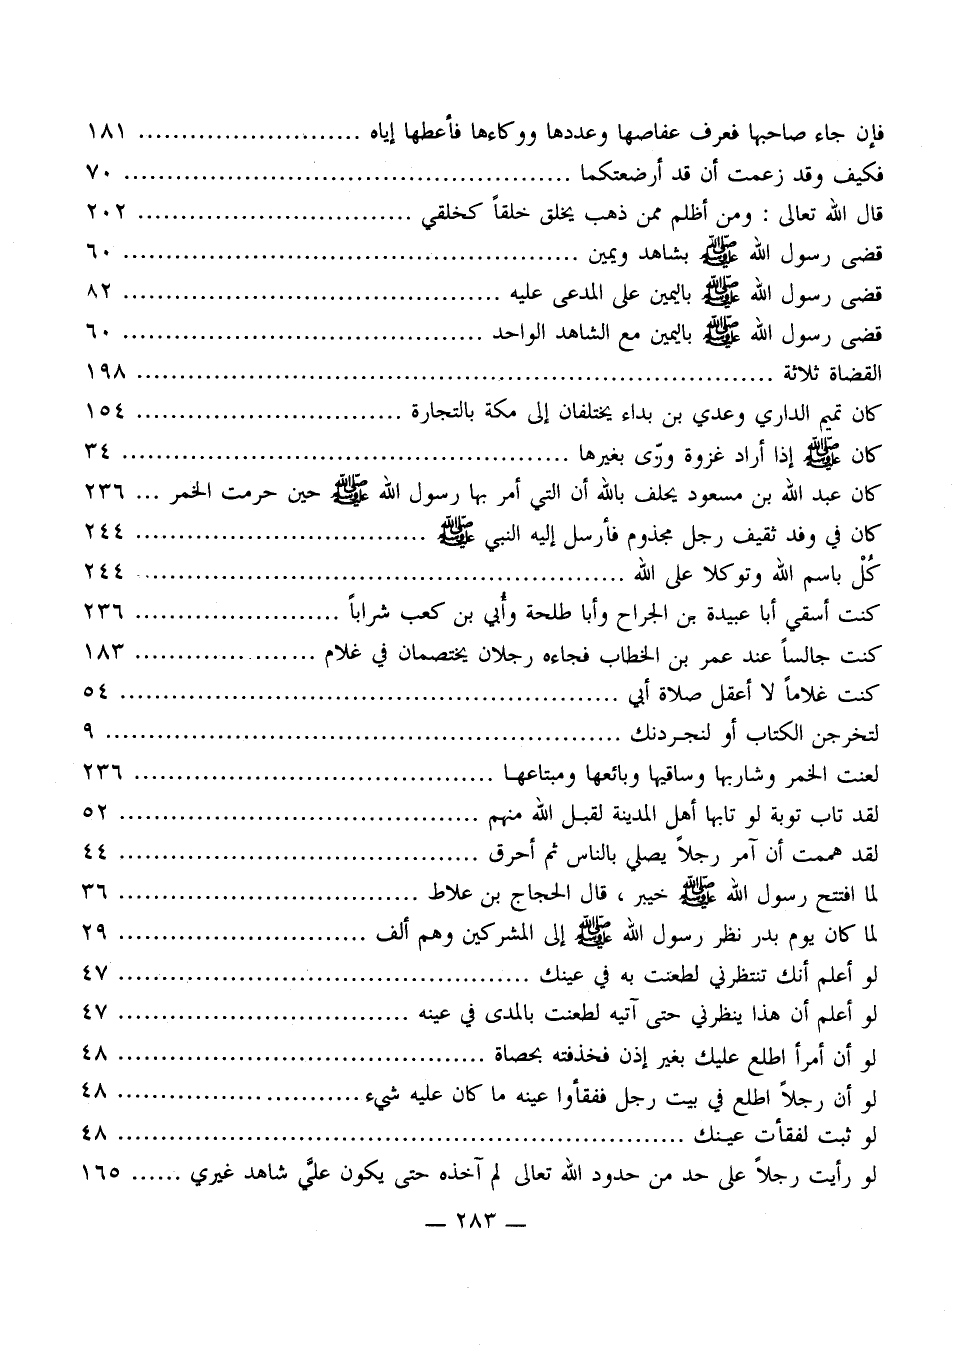 فإن جاء صاحبها فعرف عفاصها وعددها ووكاءها فأعطها إياه ......................... ١٨١
فكيف وقد زعمت أن قد أرضعتكما .................................................. ٧٠
قال الله تعالى : ومن أظلم ممن ذهب يخلق خلقاً كخلقي .............................. ٢٠٢
قضى رسول الله ﷺ بشاهد ويمين .................................................. ٦٠
قضى رسول الله ﷺ باليمين على المدعى عليه .......................................... ٨٢
قضى رسول الله ﷺ باليمين مع الشاهد الواحد ........................................ ٦٠
القضاة ثلاثة ...................................................................... ١٩٨
كان تميم الداري وعدي بن بداء يختلفان إلى مكة بالتجارة .............................. ١٥٤
كان ﷺ إذا أراد غزوة ورّى بغيرها .................................................. ٣٤
كان عبد الله بن مسعود يحلف بالله أن التي أمر بها رسول الله ﷺ حين حرمت الخمر ... ٢٣٦
كان في وفد ثقيف رجل مجذوم فأرسل إليه النبي ﷺ ................................ ٢٤٤
كُلْ باسم الله وتوكلا على الله ...................................................... ٢٤٤
كنت أسقي أبا عبيدة بن الجراح وأبا طلحة وأُبي بن كعب شراباً ....................... ٢٣٦
كنت جالساً عند عمر بن الخطاب فجاءه رجلان يختصمان في غلام .................... ١٨٣
كنت غلاماً لا أعقل صلاة أبي ...................................................... ٥٤
لتخرجن الكتاب أو لنجردنك ........................................................ ٩
لعنت الخمر وشاربها وساقيها وبائعها ومبتاعها ........................................ ٢٣٦
لقد تاب توبة لو تابها أهل المدينة لقبل الله منهم ........................................ ٥٢
لقد هممت أن آمر رجلاً يصلي بالناس ثم أحرق ........................................ ٤٤
لما افتتح رسول الله ﷺ خيبر ، قال الحجاج بن علاط ................................ ٣٦
لما كان يوم بدر نظر رسول الله ﷺ إلى المشركين وهم ألف ............................ ٢٩
لو أعلم أنك تنتظرني لطعنت به في عينك .............................................. ٤٧
لو أعلم أن هذا ينظرني حتى آتيه لطعنت بالمدى في عينه ................................ ٤٧
لو أن أمرأ اطلع عليك بغير إذن فخذفته بحصاة ........................................ ٤٨
لو أن رجلاً اطلع في بيت رجل ففقأوا عينه ما كان عليه شيء .......................... ٤٨
لو ثبت لفقأت عينك .............................................................. ٤٨
لو رأيت رجلاً على حد من حدود الله تعالى لم آخذه حتى يكون عليَّ شاهد غيري ...... ١٦٥
— ٢٨٣ —